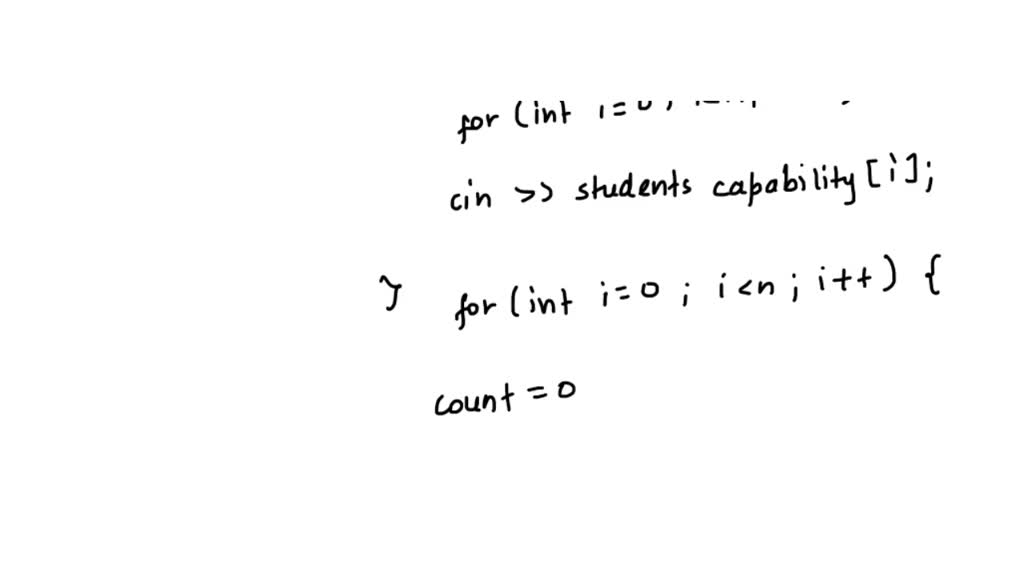 for (int i=0;
cin >> students capability[i];
} for (int i=0 ; i<n ; i++) {
count = 0